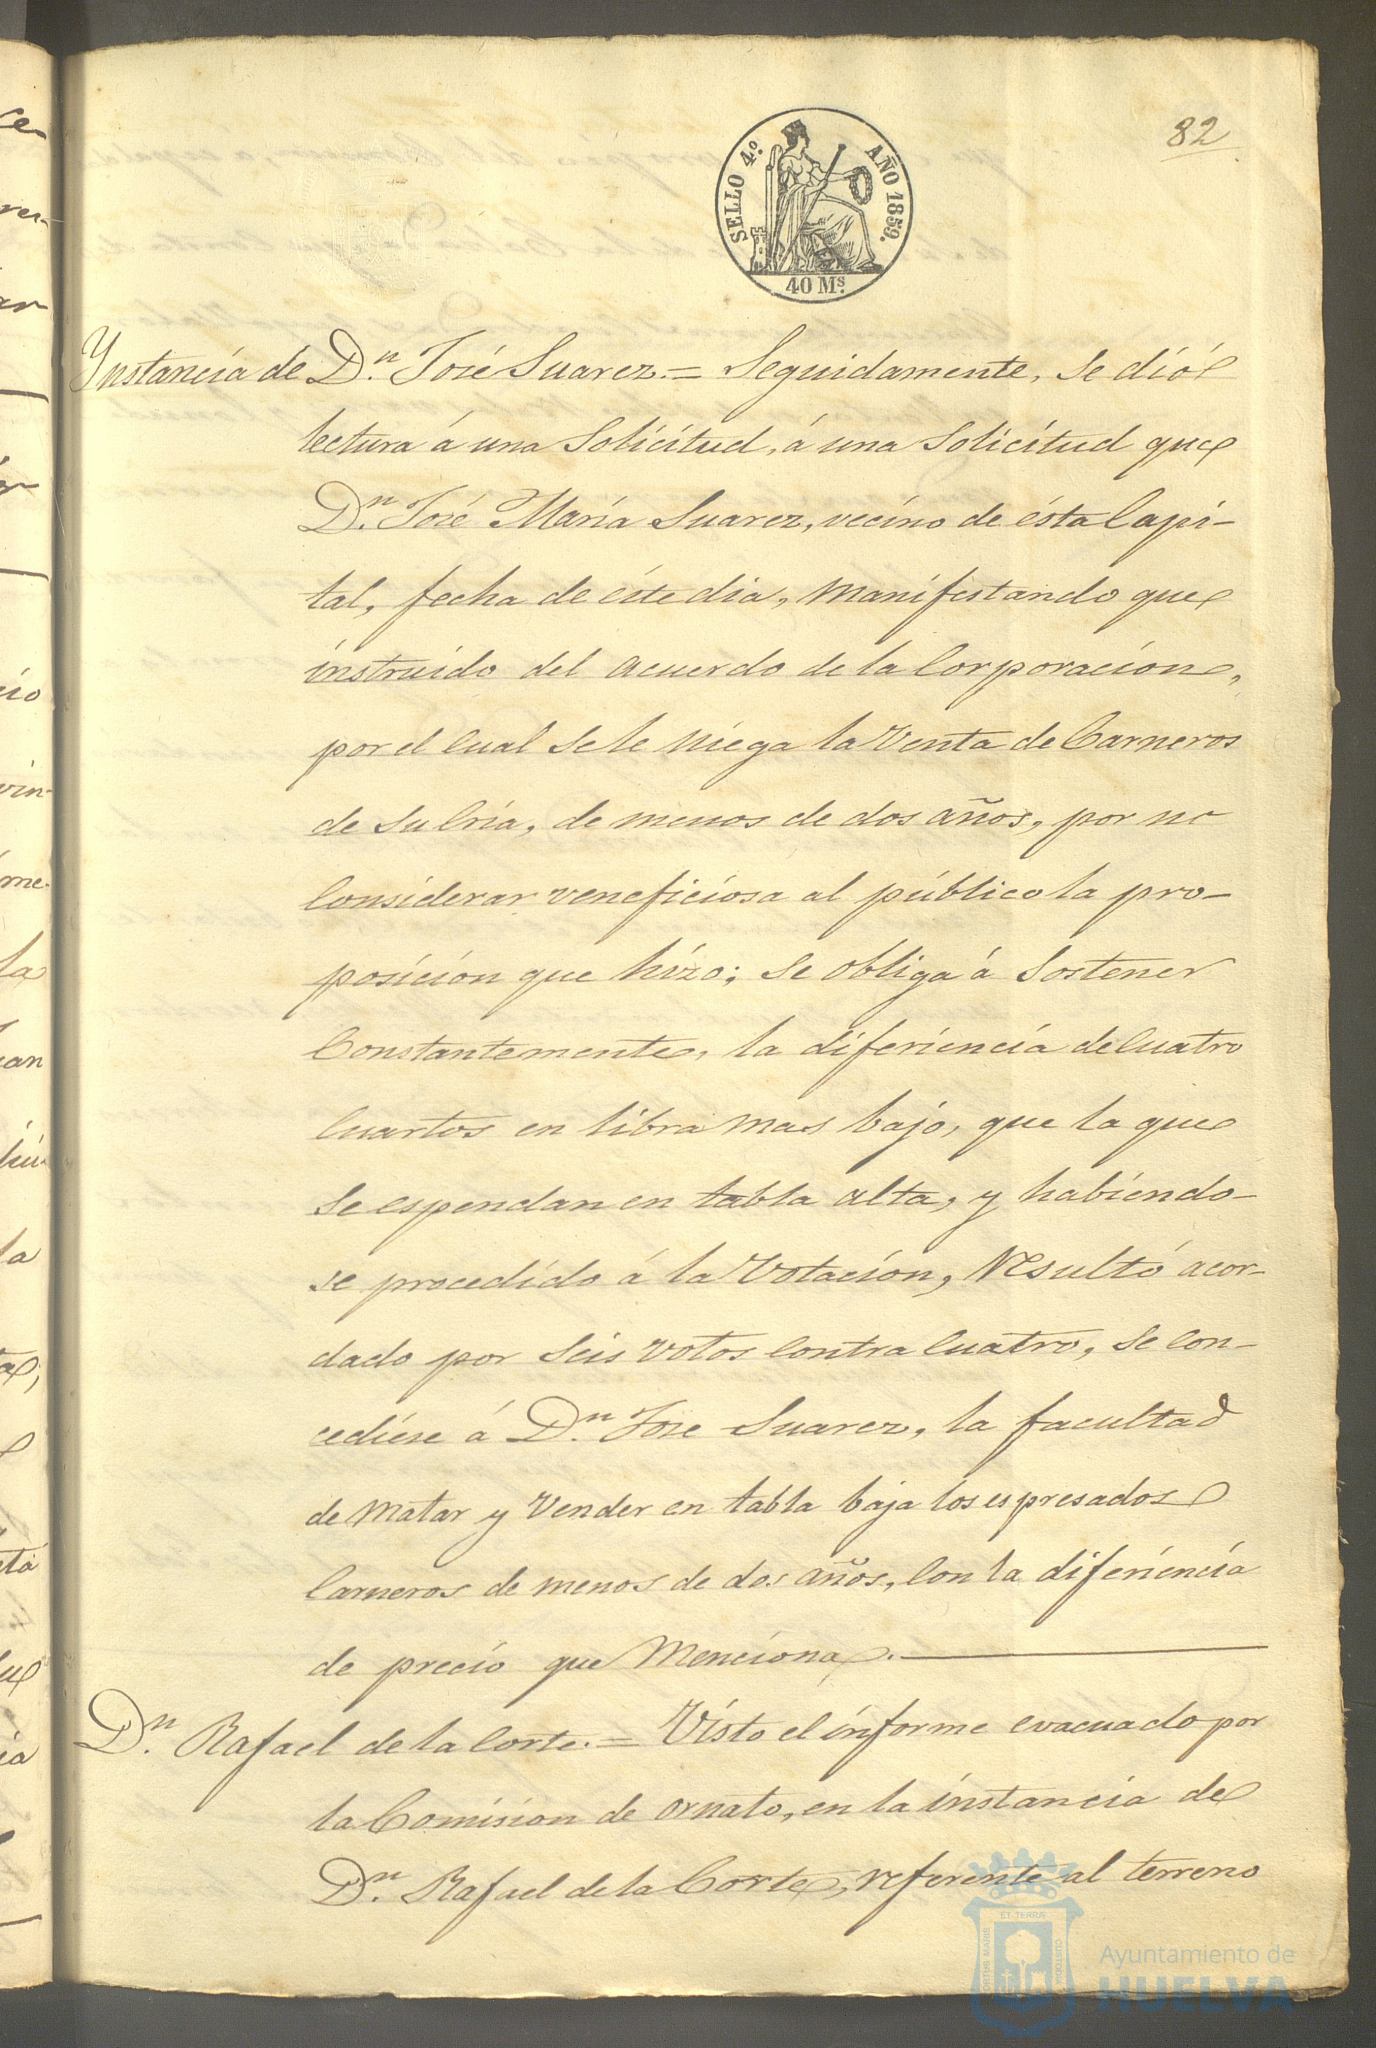 82
SELLO 4º. AÑO 1859.
40 Ms.
Ynstancia de Dn. José Suarez.= Seguidamente, se dió
lectura á una Solicitud, á una Solicitud que
Dn. José María Suarez, vecino de ésta Capi-
tal, fecha de éste dia, manifestando que
instruido del acuerdo de la Corporacion,
por el cual se le niega la Venta de Carneros
de su cria, de menos de dos años, por no
considerar veneficiosa al público la pro-
posicion que hizo; se obliga á sostener
Constantemente, la diferiencia de cuatro
cuartos en libra mas bajo, que la que
se espendan en tabla alta, y habiendo-
se procedido á la Votacion, resultó acor-
dado por seis votos contra cuatro, se con-
cediese á Dn. Jose Suarez, la facultad
de matar y Vender en tabla baja los espresados
Carneros de menos de dos años, con la diferiencia
de precio que menciona.
Dn. Rafael de la Corte.= Visto el informe evacuado por
la Comision de ornato, en la instancia de
Dn. Rafael de la Corte, referente al terreno
Ayuntamiento de
HUELVA